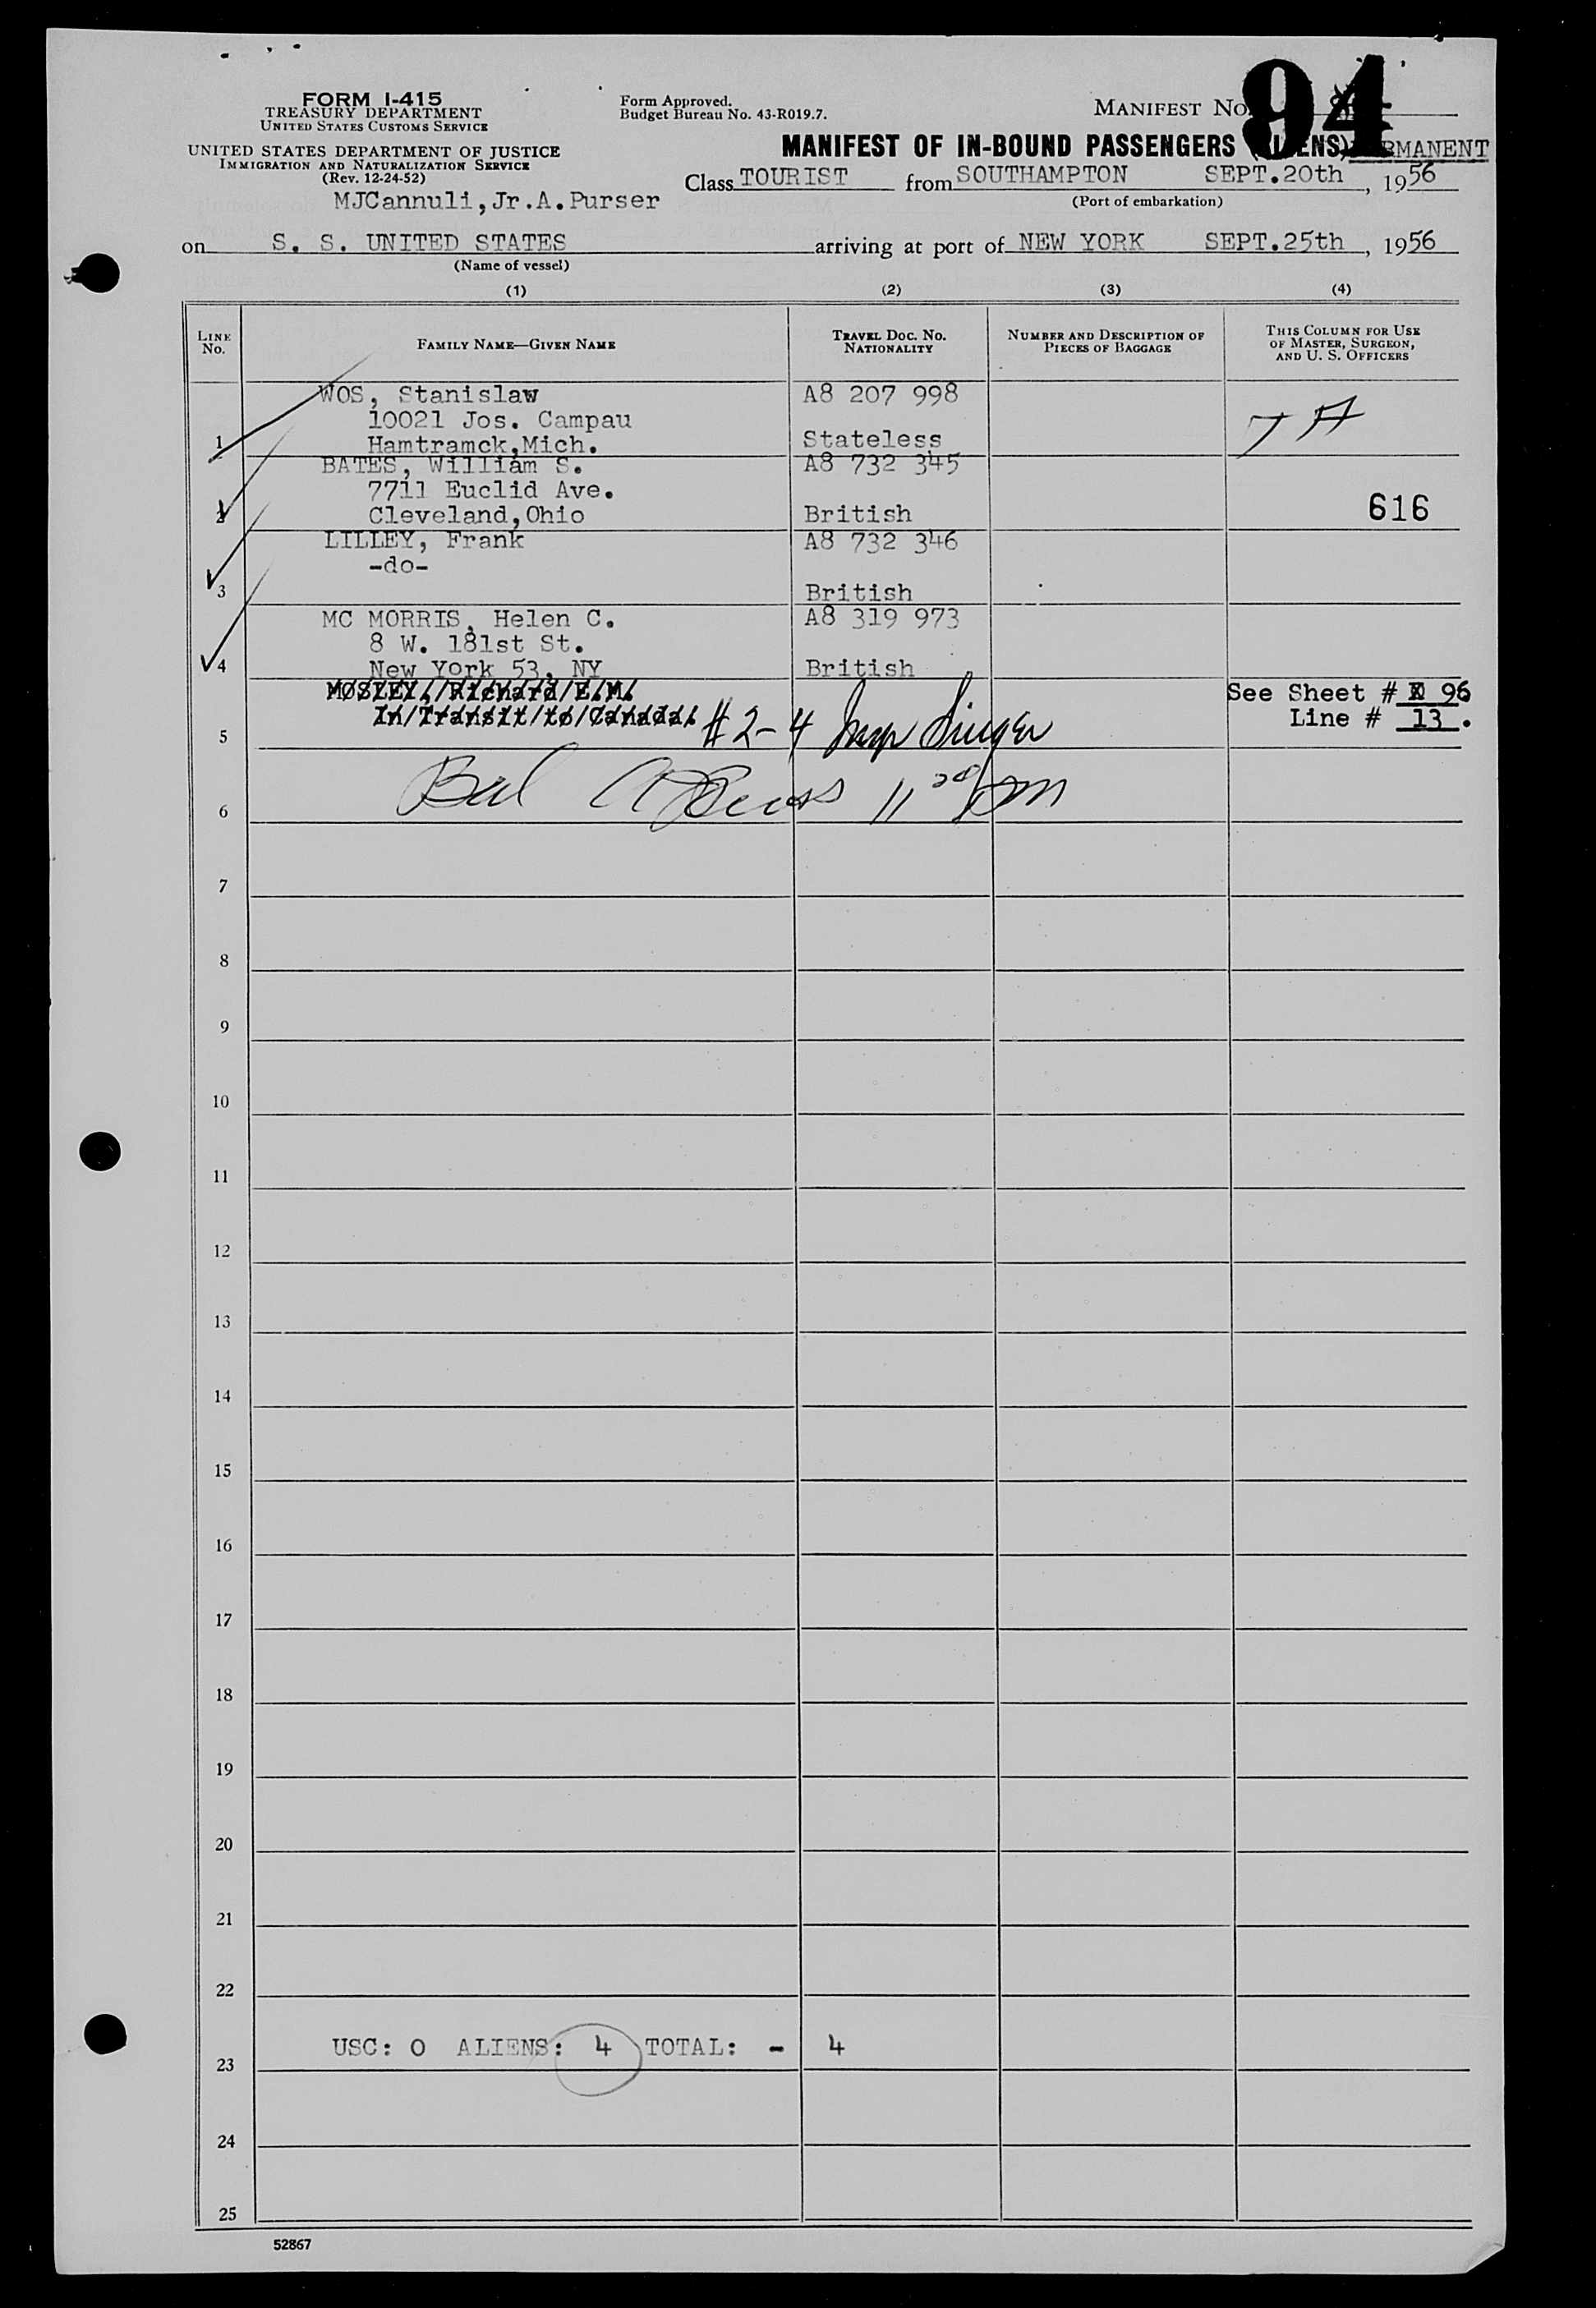 94
FORM I-415
TREASURY DEPARTMENT
UNITED STATES CUSTOMS SERVICE
UNITED STATES DEPARTMENT OF JUSTICE
IMMIGRATION AND NATURALIZATION SERVICE
(Rev. 12-24-52)
MJCannuli,Jr.A.Purser
Form Approved.
Budget Bureau No. 43-R019.7.
MANIFEST NO.
MANIFEST OF IN-BOUND PASSENGERS (ALIENS) PERMANENT
Class TOURIST from SOUTHAMPTON SEPT.20th, 1956
(Port of embarkation)
on S. S. UNITED STATES arriving at port of NEW YORK SEPT.25th, 1956
(Name of vessel)
(1) (2) (3) (4)
LINE NO.
FAMILY NAME—GIVEN NAME
TRAVEL DOC. NO. NATIONALITY
NUMBER AND DESCRIPTION OF PIECES OF BAGGAGE
THIS COLUMN FOR USE OF MASTER, SURGEON, AND U. S. OFFICERS
WOS, Stanislaw A8 207 998
10021 Jos. Campau
1 Hamtramck,Mich. Stateless
BATES, William S. A8 732 345
7711 Euclid Ave.
2 Cleveland,Ohio British 616
LILLEY, Frank A8 732 346
-do-
3 British
MC MORRIS, Helen C. A8 319 973
8 W. 181st St.
4 New York 53, NY British
MOSLEY, Richard E.M. See Sheet # 96
In Transit to Canada. #2-4 Insp Singer Line # 13.
5
6 11 30 pm
7
8
9
10
11
12
13
14
15
16
17
18
19
20
21
22
USC: 0 ALIENS: 4 TOTAL: - 4
23
24
25
52867